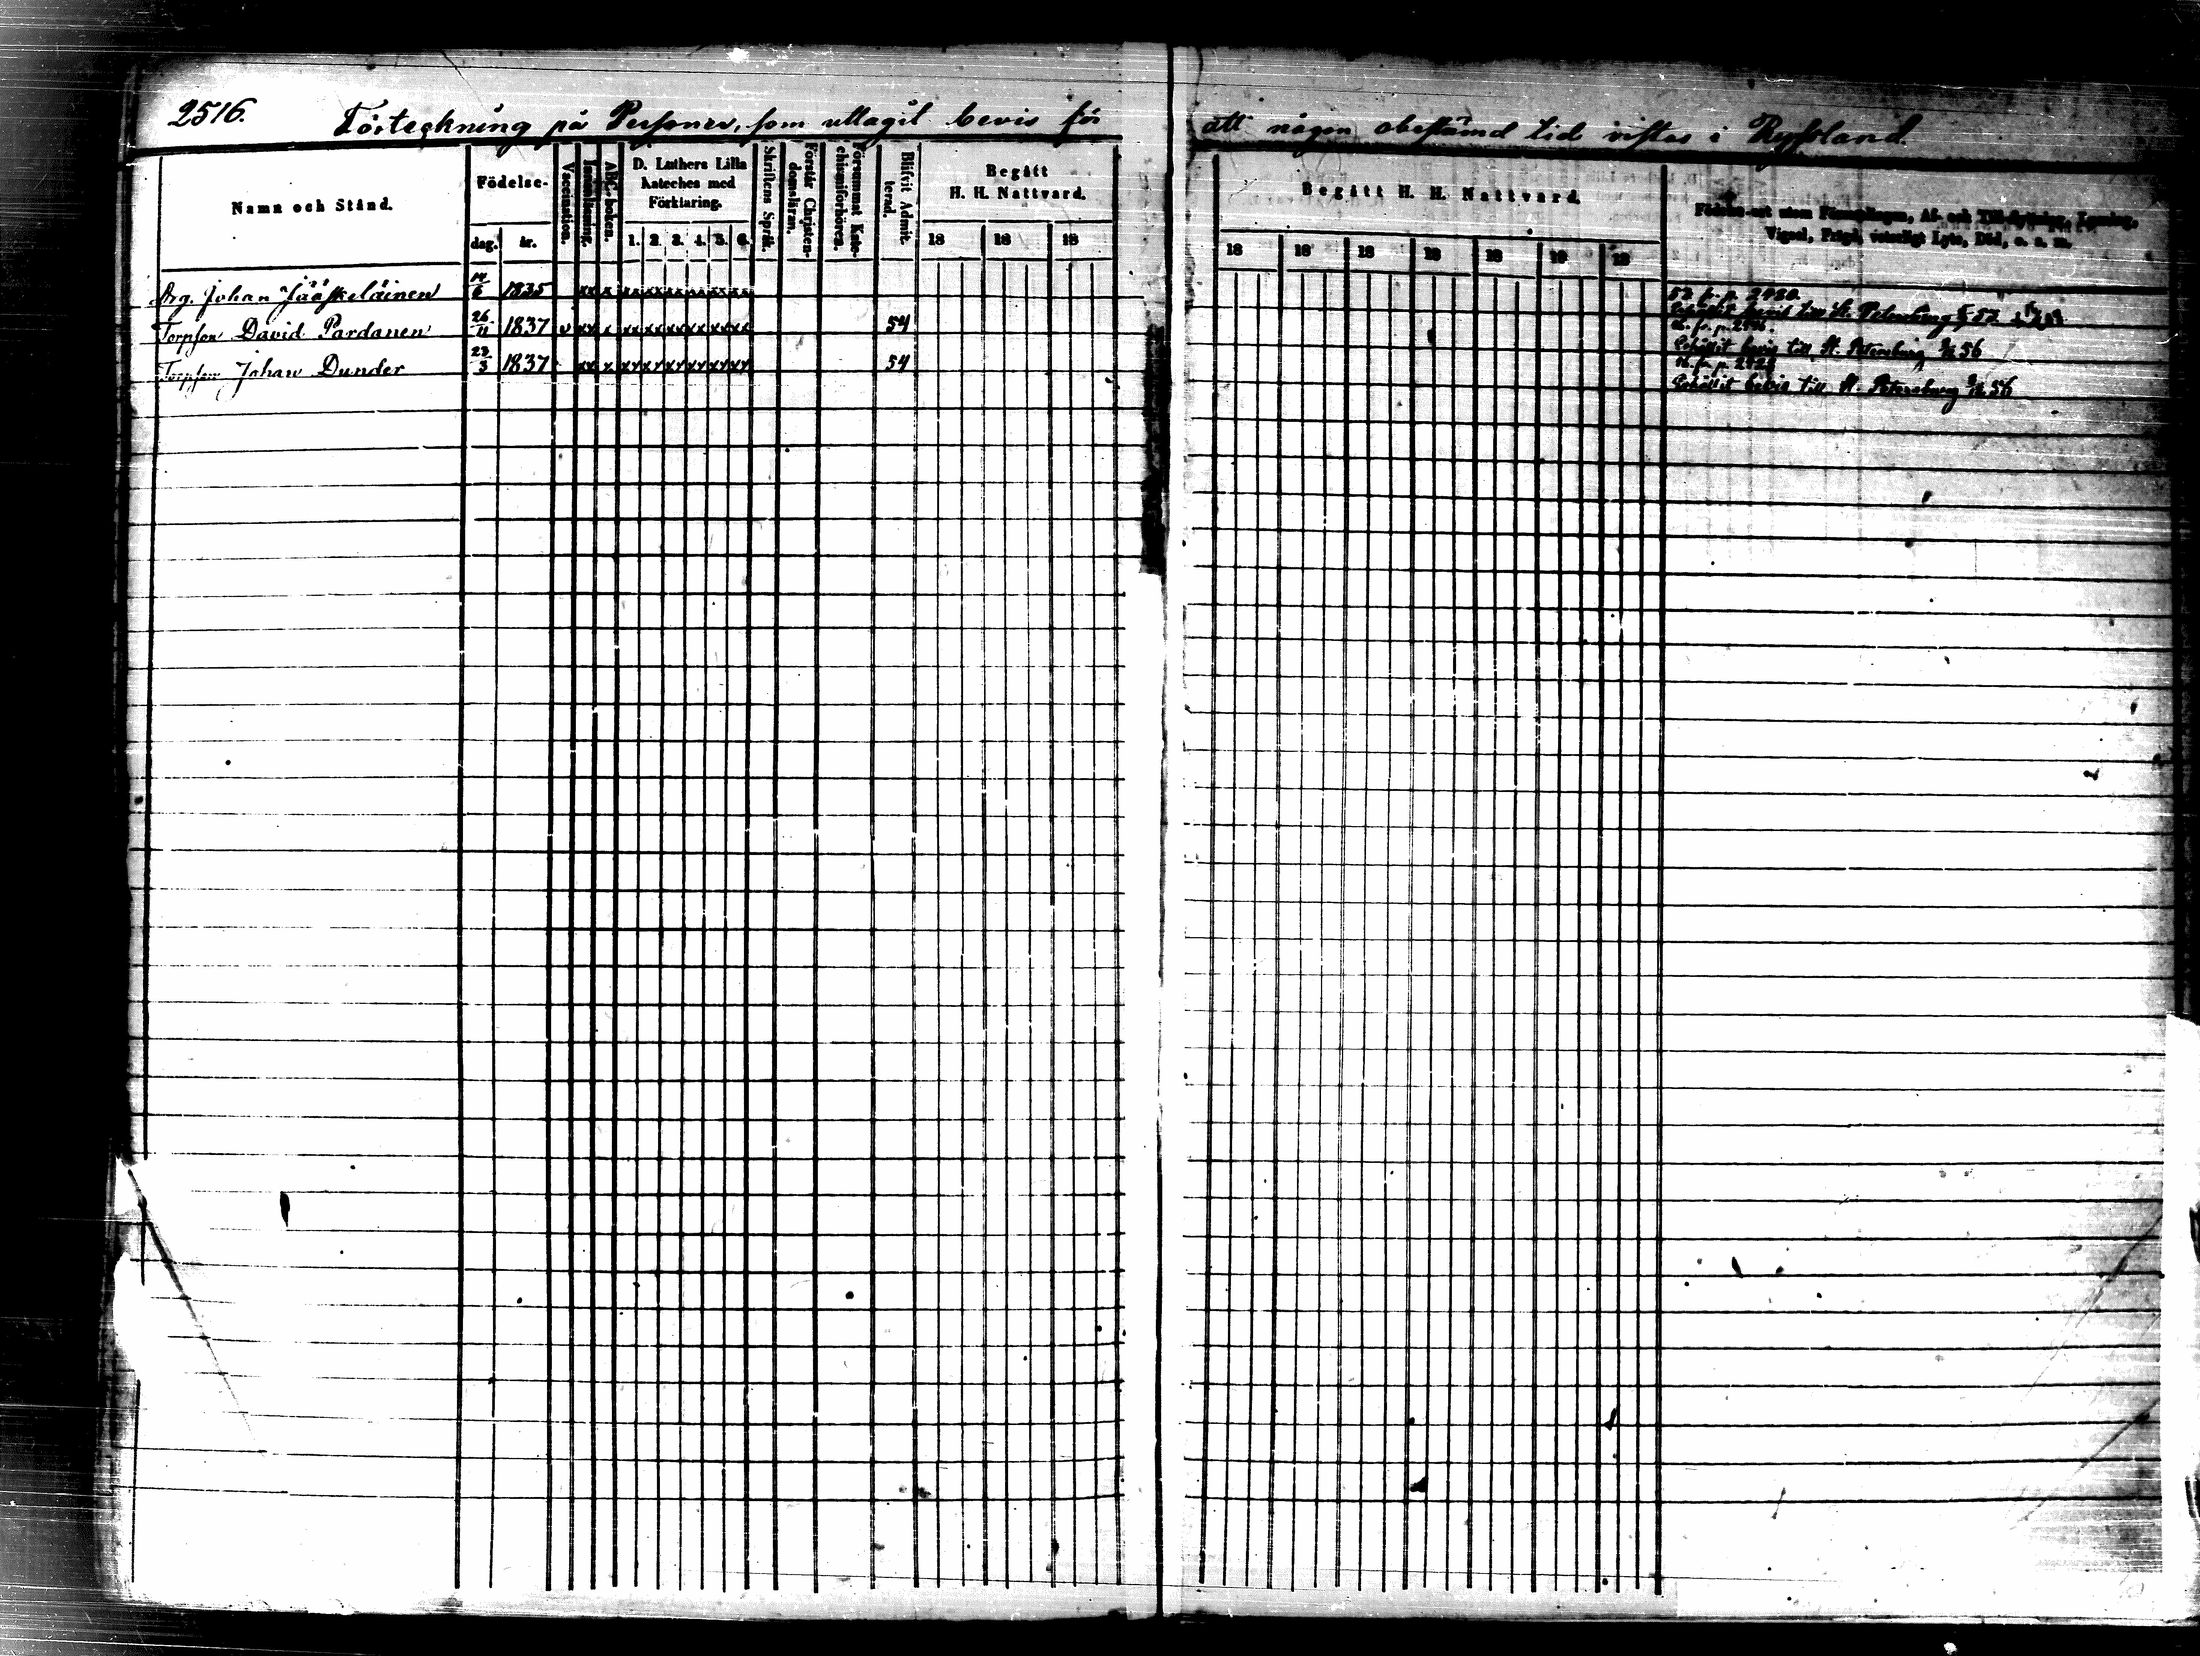 2516.
Förteckning på Personer, som uttagit bevis för att någon obestämd tid vistas i Ryssland.
Namn och Stånd.
Födelse-
dag.
år.
Vaccination.
Innanläsning.
ABC-boken.
D. Luthers Lilla
Kateches med
Förklaring.
1. 2. 3. 4. 5. 6.
Skriftens Språk.
Förstår Christen-
domsläran.
Försummat Kate-
chismiförhören.
Blifvit Admit-
terad.
Begått
H. H. Nattvard.
18 18 18
Begått H. H. Nattvard.
18 18 18 18 18 18 18
Födelse-ort utom Församlingen, Af- och Till-flyttning, Lysning,
Vigsel, Frägd, veterligt Lyte, Död, o. s. m.
Arg. Johan Jääskeläinen 14/6 1835 xx x xx xx xx xx xx xx 57 fr. p. 2480.
bevis till St. Petersburg 57
Torpson David Pardanen 26/11 1837 v xx x xx xx xx xx xx xx 54 56 fr. p.
Erhållit bevis till St. Petersburg 56
Torpson Johan Dunder 23/3 1837 xx x xx xx xx xx xx xx 54 56 fr. p.
Erhållit bevis till St. Petersburg 56